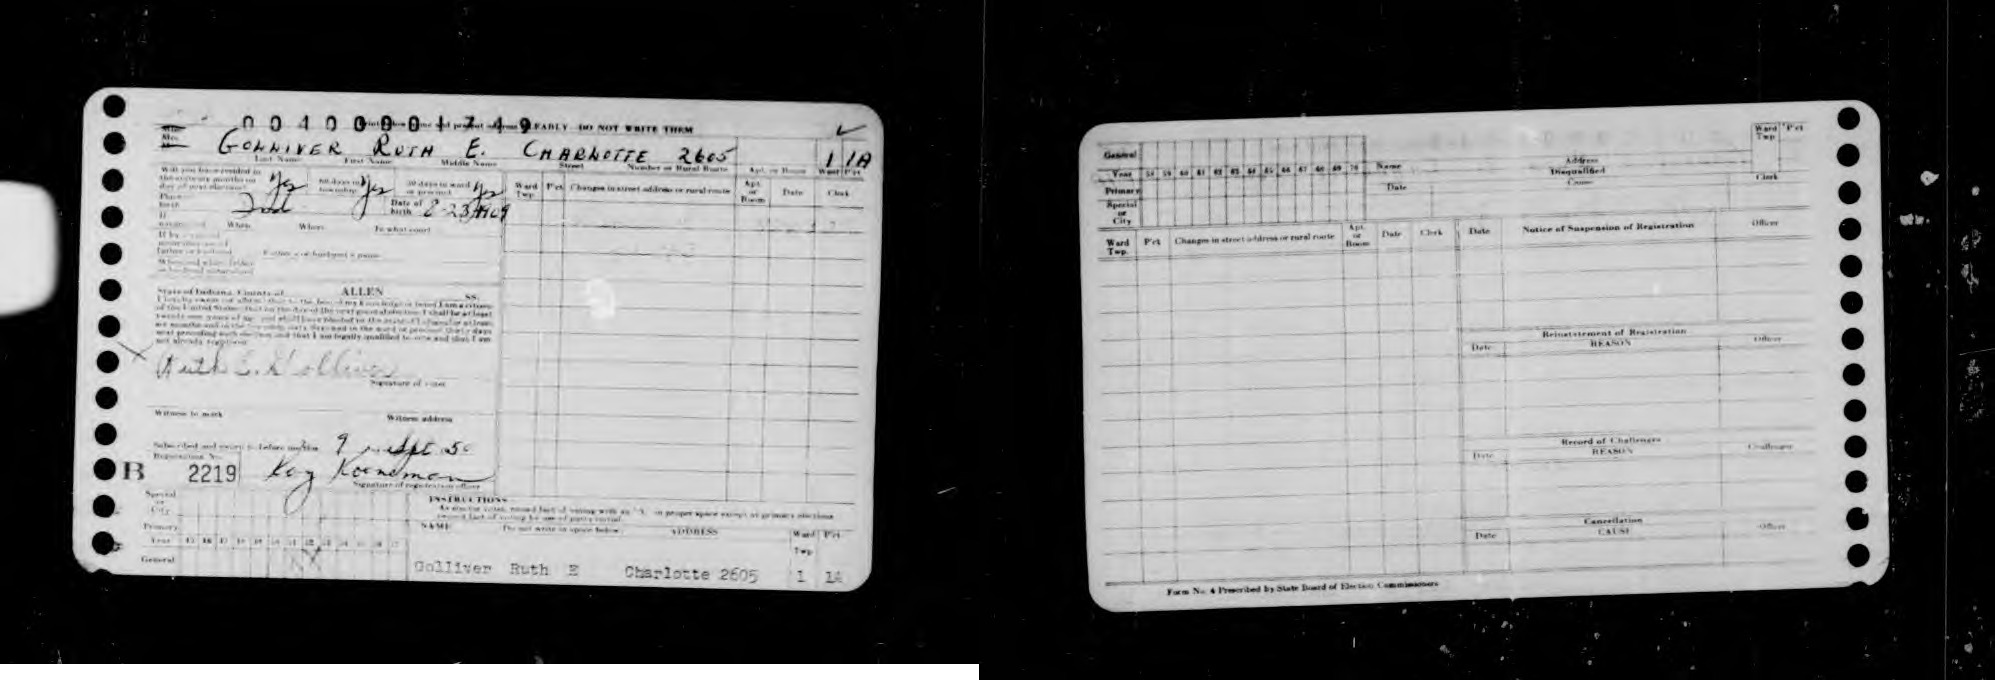 0040001749
CLEARLY DO NOT WRITE THEM
GOLLIVER RUTH E. CHARLOTTE 2605 1 1A
Last Name First Name Middle Name Street Number or Rural Route Apt. or Room Ward P'ct
Will you have resided in
the state six months on
day of next election? Yes 60 days in township Yes 30 days in ward or precinct Yes
Place birth Ind Date of birth 8-23-1909
Ward Twp. P'ct Changes in street address or rural route Apt. or Room Date Clerk
If When Where In what court
Father's or husband's name
State of Indiana, County of ALLEN SS.
I hereby swear (or affirm) that to the best of my knowledge and belief I am a citizen
of the United States; that on the day of the next general election I shall be at least
twenty-one years of age and shall have resided in the state of Indiana for at least
six months and in the township sixty days and in the ward or precinct thirty days
next preceding such election and that I am legally qualified to vote and that I am
not already registered
Ruth E. Golliver
Signature of voter
Witness to mark Witness address
Subscribed and sworn to before me this 9 Sept 50
Registration No.
B 2219 Kay Koeneman
Signature of registration officer
Special
or
City
Primary
Year 45 46 47 48 49 50 51 52 53 54 55 56 57
General
INSTRUCTIONS
NAME Do not write in space below ADDRESS Ward Twp P'ct
Golliver Ruth E Charlotte 2605 1 1A
General
Year 58 59 60 61 62 63 64 65 66 67 68 69 70
Primary
Special
or
City
Name Address Ward Twp P'ct
Date Disqualified Cause Clerk
Ward Twp. P'ct Changes in street address or rural route Apt. or Room Date Clerk
Date Notice of Suspension of Registration Officer
Reinstatement of Registration
Date REASON Officer
Record of Challenges
Date REASON Challenger
Cancellation
Date CAUSE Officer
Form No. 4 Prescribed by State Board of Election Commissioners